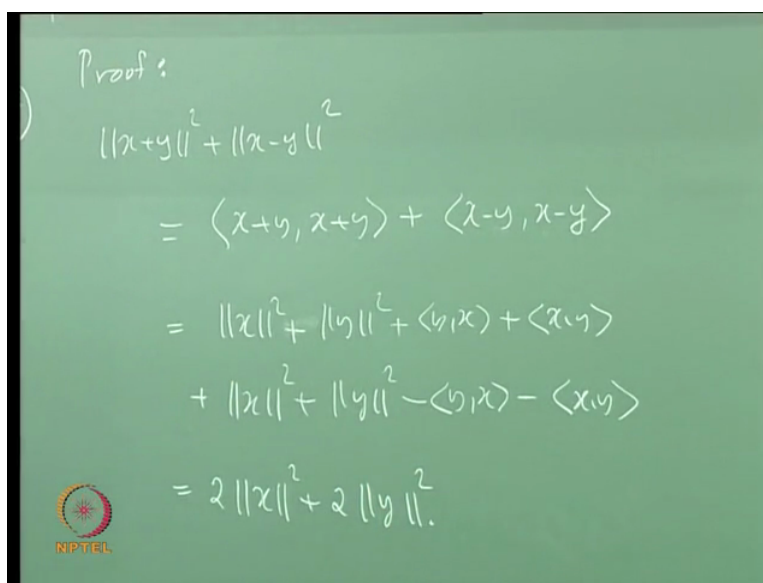 Proof:
||x+y||² + ||x-y||²
= ⟨x+y, x+y⟩ + ⟨x-y, x-y⟩
= ||x||² + ||y||² + ⟨y,x⟩ + ⟨x,y⟩
+ ||x||² + ||y||² - ⟨y,x⟩ - ⟨x,y⟩
= 2||x||² + 2||y||².
NPTEL